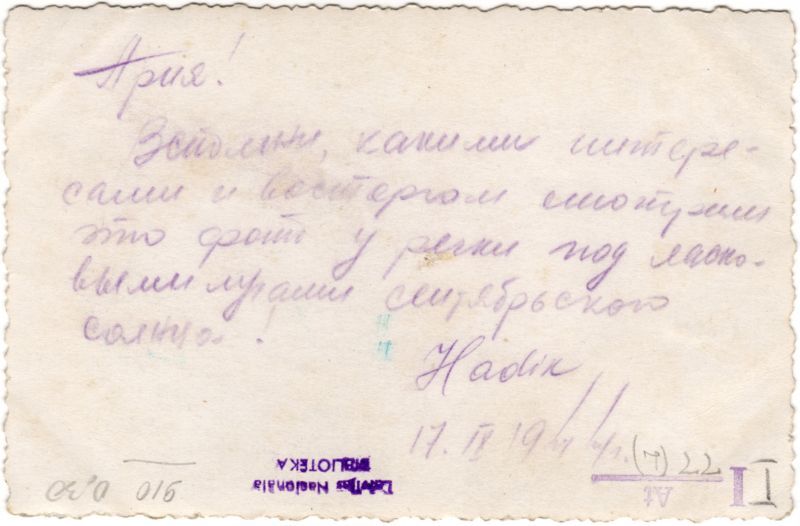 Ария!
Вспомни, какими интере-
сами и восторгом смотрели
это фото у речки под ласко-
выми лучами сентябрьского
солнца!
Hadik
17. IX 1944г.
Latvijas Nacionālā
BIBLIOTĒKA
At
77 (7)
I